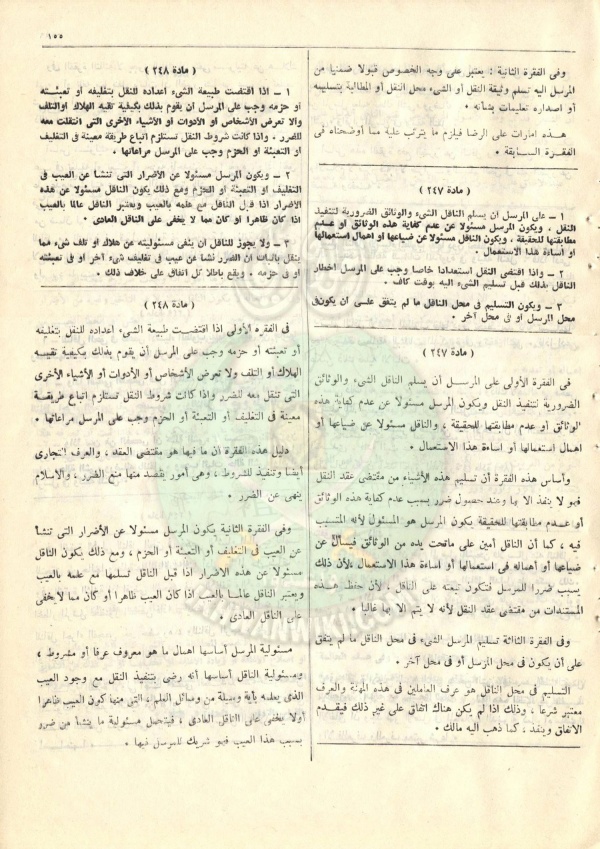 ١٥٥
وفى الفقرة الثانية : يعتبر على وجه الخصوص قبولا ضمنيا من
المرسل اليه تسلم وثيقة النقل أو الشىء محل النقل أو المطالبة بتسليمه
أو اصداره تعليمات بشأنه .
هذه امارات على الرضا فيلزم ما يترتب عليه مما أوضحناه فى
الفقرة السابقة .
( مادة ٢٤٧ )
١ – على المرسل ان يسلم الناقل الشىء والوثائق الضرورية لتنفيذ
النقل ، ويكون المرسل مسئولا عن عدم كفاية هذه الوثائق أو عدم
مطابقتها للحقيقة ، ويكون الناقل مسئولا عن ضياعها أو اهمال استعمالها
أو اساءة هذا الاستعمال .
٢ – واذا اقتضى النقل استعدادا خاصا وجب على المرسل اخطار
الناقل بذلك قبل تسليم الشىء اليه بوقت كاف .
٣ – ويكون التسليم فى محل الناقل ما لم يتفق على ان يكون فى
محل المرسل او فى محل آخر .
( مادة ٢٤٧ )
فى الفقرة الأولى على المرسل أن يسلم الناقل الشىء والوثائق
الضرورية لتنفيذ النقل ويكون المرسل مسئولا عن عدم كفاية هذه
الوثائق أو عدم مطابقتها للحقيقة ، والناقل مسئولا عن ضياعها أو
اهمال استعمالها أو اساءة هذا الاستعمال .
وأساس هذه الفقرة أن تسليم هذه الأشياء من مقتضى عقد النقل
فهو لا ينفذ الا بها وعند حصول ضرر بسبب عدم كفاية هذه الوثائق
أو عدم مطابقتها للحقيقة يكون المرسل هو المسئول لأنه المتسبب
فيه ، كما أن الناقل أمين على ماتحت يده من الوثائق فيسأل عن
ضياعها أو اهماله فى استعمالها أو اساءة هذا الاستعمال ، لأن ذلك
يسبب ضررا للمرسل فتكون تبعته على الناقل ، لأن حفظ هذه
المستندات من مقتضى عقد النقل لأنه لا يتم الا بها غالبا .
وفى الفقرة الثالثة تسليم المرسل الشىء فى محل الناقل ما لم يتفق
على أن يكون فى محل المرسل أو فى محل آخر .
التسليم فى محل الناقل هو عرف العاملين فى هذه المهنة والعرف
معتبر شرعا ، وذلك اذا لم يكن هناك اتفاق على غير ذلك فيقدم
الاتفاق وينفذ ، كما ذهب اليه مالك .
( مادة ٢٤٨ )
١ – اذا اقتضت طبيعة الشىء اعداده للنقل بتغليفه أو تعبئته
أو حزمه وجب على المرسل ان يقوم بذلك بكيفية تقيه الهلاك أو التلف
ولا تعرض الأشخاص أو الأدوات أو الأشياء الأخرى التى انتقلت معه
للضرر . واذا كانت شروط النقل تستلزم اتباع طريقة معينة فى التغليف
أو التعبئة أو الحزم وجب على المرسل مراعاتها .
٢ – ويكون المرسل مسئولا عن الأضرار التى تنشأ عن العيب فى
التغليف أو التعبئة أو الحزم ومع ذلك يكون الناقل مسئولا عن هذه
الأضرار اذا قبل النقل مع علمه بالعيب ويعتبر الناقل عالما بالعيب
اذا كان ظاهرا أو كان مما لا يخفى على الناقل العادى .
٣ – ولا يجوز للناقل ان ينفى مسئوليته عن هلاك أو تلف شىء مما
ينقل باثبات ان الضرر نشأ عن عيب فى تغليف شىء آخر أو فى تعبئته
أو فى حزمه . ويقع باطلا كل اتفاق على خلاف ذلك .
( مادة ٢٤٨ )
فى الفقرة الأولى اذا اقتضيت طبيعة الشىء اعداده للنقل بتغليفه
أو تعبئته أو حزمه وجب على المرسل أن يقوم بذلك بكيفية تقيه
الهلاك أو التلف ولا تعرض الأشخاص أو الأدوات أو الأشياء الأخرى
التى تنقل معه للضرر واذا كانت شروط النقل تستلزم اتباع طريقة
معينة فى التغليف أو التعبئة أو الحزم وجب على المرسل مراعاتها .
دليل هذه الفقرة ان ما فيها هو مقتضى العقد ، والعرف التجارى
أيضا وتنفيذ للشروط ، وهى أمور يقصد منها منع الضرر ، والاسلام
ينهى عن الضرر .
وفى الفقرة الثانية يكون المرسل مسئولا عن الأضرار التى تنشأ
عن العيب فى التغليف أو التعبئة أو الحزم ، ومع ذلك يكون الناقل
مسئولا عن هذه الاضرار اذا قبل الناقل تسلمها مع علمه بالعيب
ويعتبر الناقل عالما بالعيب اذا كان العيب ظاهرا أو كان مما لايخفى
على الناقل العادى .
مسئولية المرسل أساسها اهمال ما هو معروف عرفا أو مشروط ،
ومسئولية الناقل أساسها أنه رضى بتنفيذ النقل مع وجود العيب
الذى يعلمه بأية وسيلة من وسائل العلم ، التى منها كون العيب ظاهرا
أو لا يخفى على الناقل العادى ، فيتحمل مسئولية ما ينشأ من ضرر
بسبب هذا العيب فهو شريك للمرسل فيها .